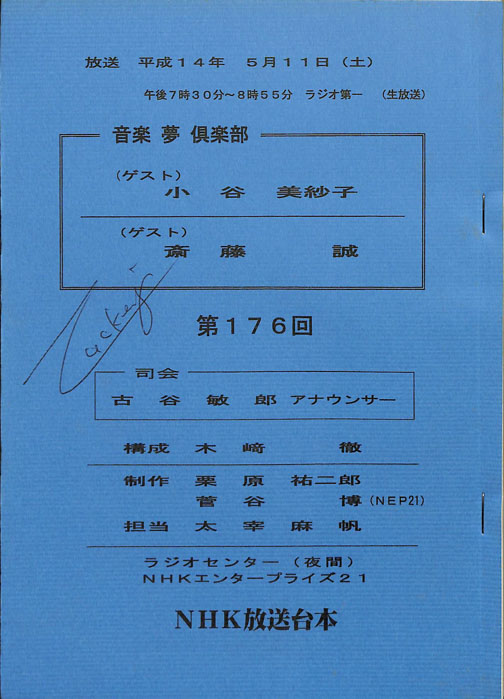 放送 平成14年 5月11日(土)
午後7時30分～8時55分 ラジオ第一 (生放送)
音楽 夢 倶楽部
(ゲスト)
小谷 美紗子
(ゲスト)
斎藤 誠
第176回
司会
古谷 敏郎 アナウンサー
構成 木﨑 徹
制作 栗原 祐二郎
菅谷 博(NEP21)
担当 太宰麻帆
ラジオセンター(夜間)
NHKエンタープライズ21
NHK放送台本